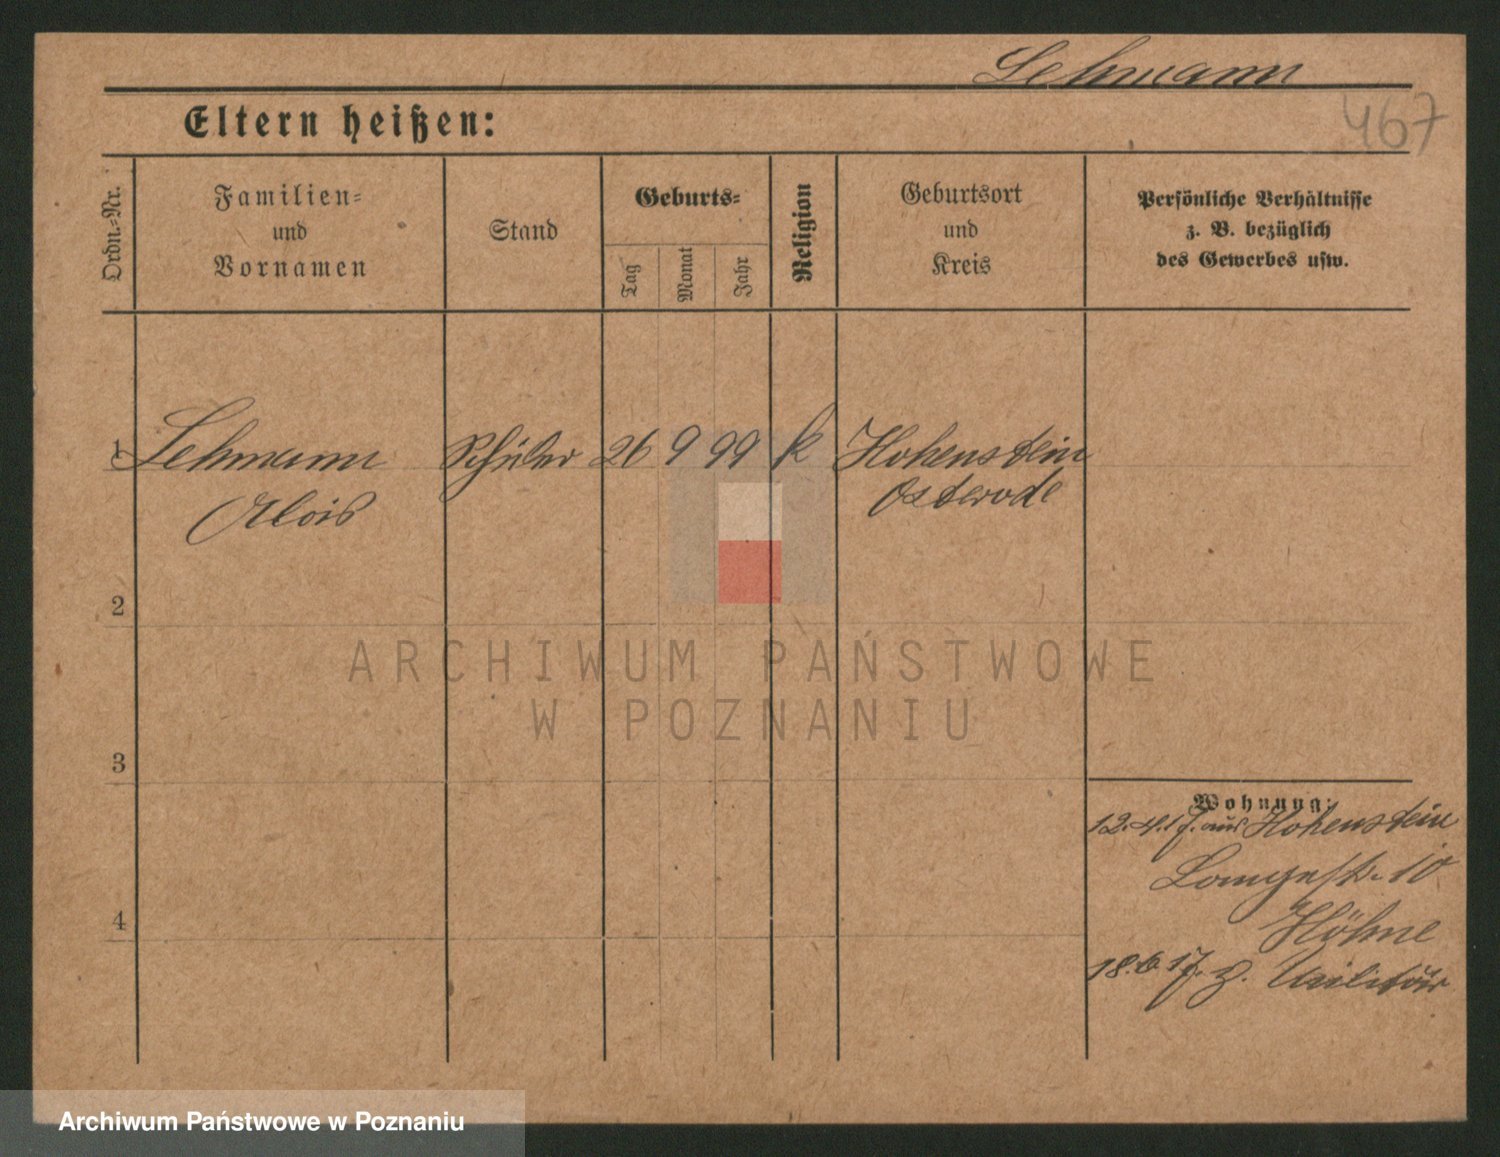 Lehmann
467
Eltern heißen:
Ordn.-Nr.
Familien-
und
Vornamen
Stand
Geburts-
Tag
Monat
Jahr
Religion
Geburtsort
und
Kreis
Persönliche Verhältnisse
z. B. bezüglich
des Gewerbes usw.
1 Lehmann Schüler 26 9 99 k Hohenstein
Alois Osterode
2
ARCHIWUM PAŃSTWOWE
W POZNANIU
3
Wohnung:
12.4.17. aus Hohenstein
Langestr. 10
4
Höhne
18.6.17. z. Militär
Archiwum Państwowe w Poznaniu